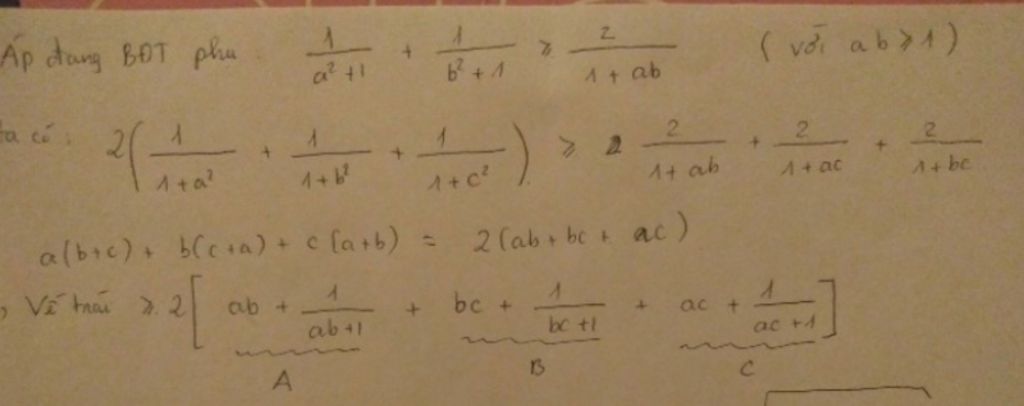 Áp dụng BĐT phụ 1/(a²+1) + 1/(b²+1) ≥ 2/(1+ab) (với ab ≥ 1)
ta có: 2(1/(1+a²) + 1/(1+b²) + 1/(1+c²)) ≥ 2/(1+ab) + 2/(1+ac) + 2/(1+bc)
a(b+c) + b(c+a) + c(a+b) = 2(ab+bc+ac)
, Vế trái ≥ 2[ab + 1/(ab+1) + bc + 1/(bc+1) + ac + 1/(ac+1)]
A B C